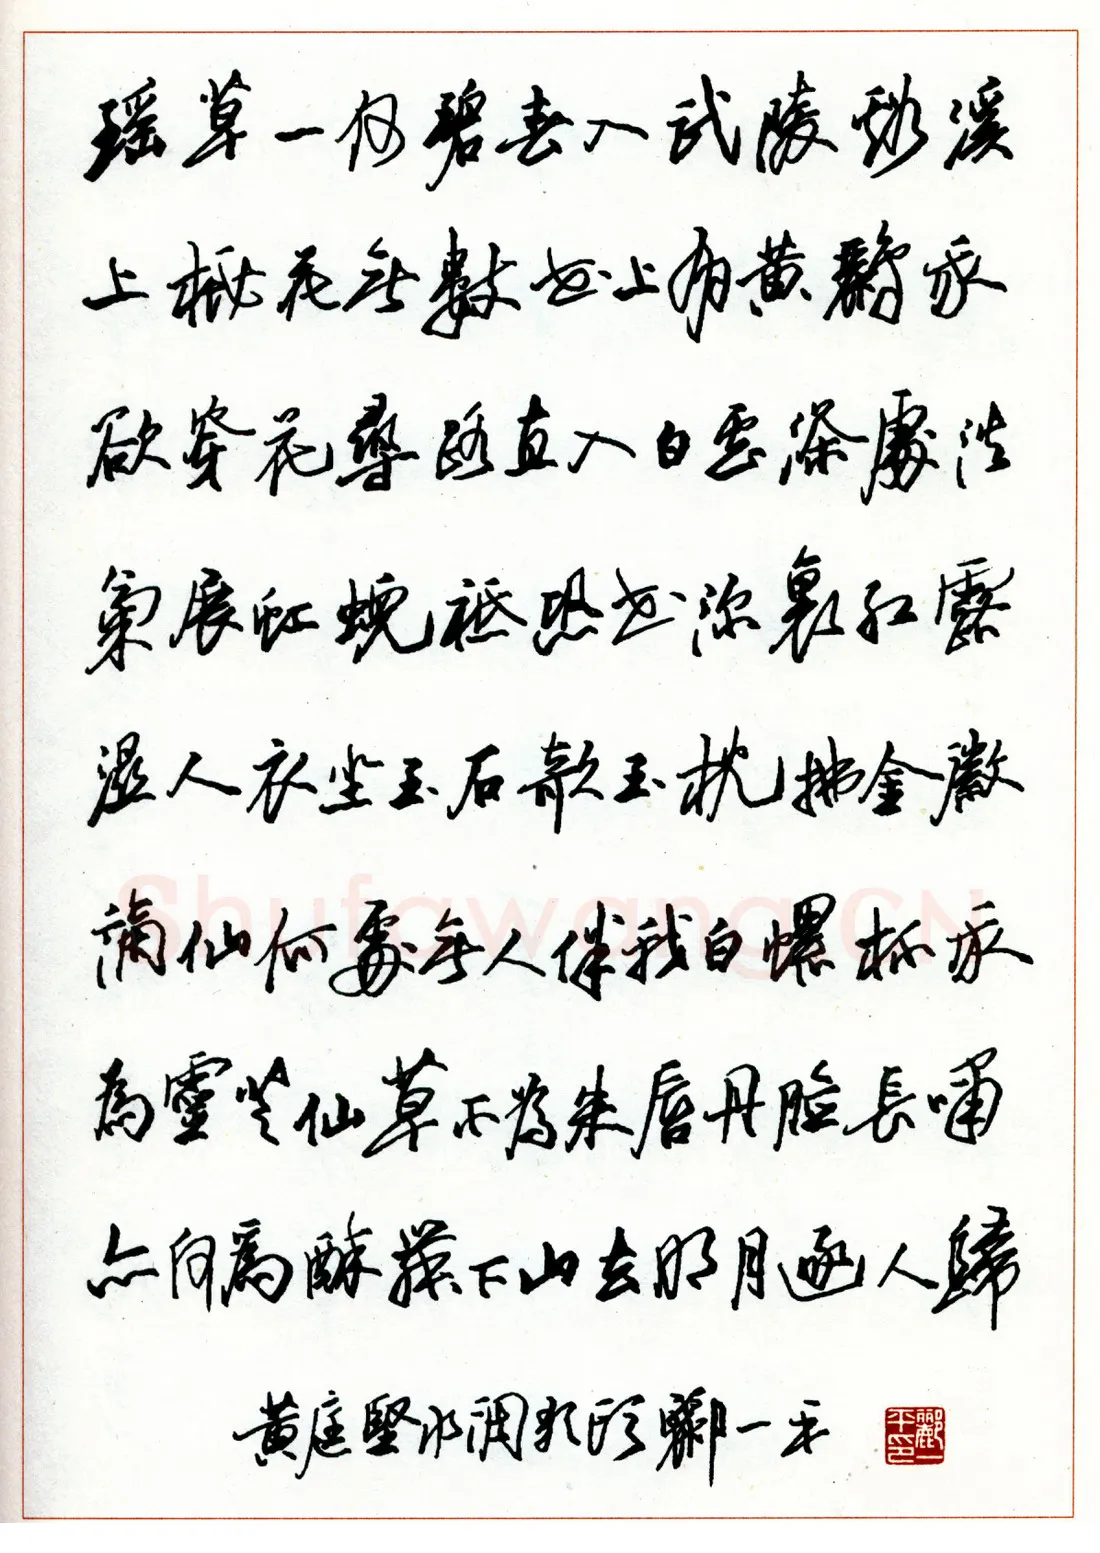 瑶草一何碧春入武陵谿溪
上桃花无數花上有黄鸝我
欲穿花尋路直入白雲深處浩
氣展虹蜺祗恐花深裏紅露
濕人衣坐玉石欹玉枕拂金徽
謫仙何處无人伴我白螺杯我
為靈芝仙草不為朱唇丹臉長嘯
亦何為醉舞下山去明月逐人歸
黄庭堅水調歌頭酈一平
酈一平印
Shufawang.CN